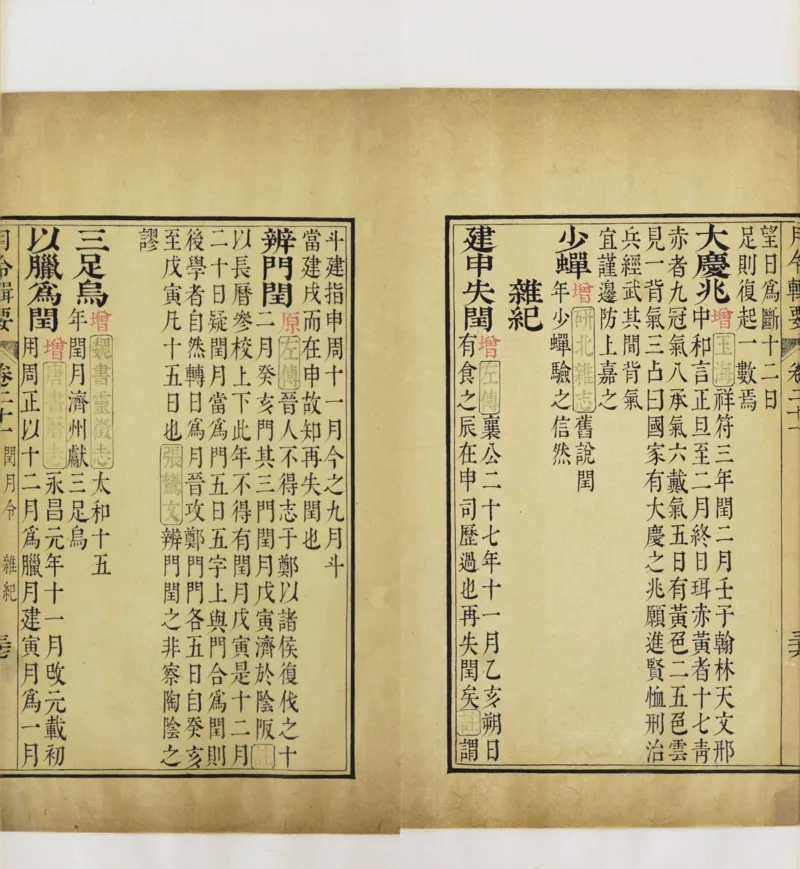 月令輯要 卷二十一
望日為斷十二日
足則復起一數焉
大慶兆增玉海祥符三年閏二月壬子翰林天文邢
中和言正旦至二月終日珥赤黃者十七青
赤者九冠氣八承氣六戴氣五日有黃色二五色雲
見一背氣三占曰國家有大慶之兆願進賢恤刑治
兵經武其間背氣
宜謹邊防上嘉之
少蟬增研北雜志舊說閏
年少蟬驗之信然
雜紀
建申失閏增左傳襄公二十七年十一月乙亥朔日
有食之辰在申司歷過也再失閏矣註謂
斗建指申周十一月今之九月斗
當建戌而在申故知再失閏也
辨門閏原左傳晉人不得志于鄭以諸侯復伐之十
二月癸亥門其三門閏月戊寅濟於陰阪註
以長曆參校上下此年不得有閏月戊寅是十二月
二十日疑閏月當為門五日五字上與門合為閏則
後學者自然轉日為月晉攻鄭門門各五日自癸亥
至戊寅凡十五日也張鷟文辨門閏之非察陶陰之
謬
三足烏增魏書靈徵志太和十五
年閏月濟州獻三足烏
以臘為閏增唐書曆志永昌元年十一月改元載初
用周正以十二月為臘月建寅月為一月
月令輯要 卷二十一 閏月令 雜紀